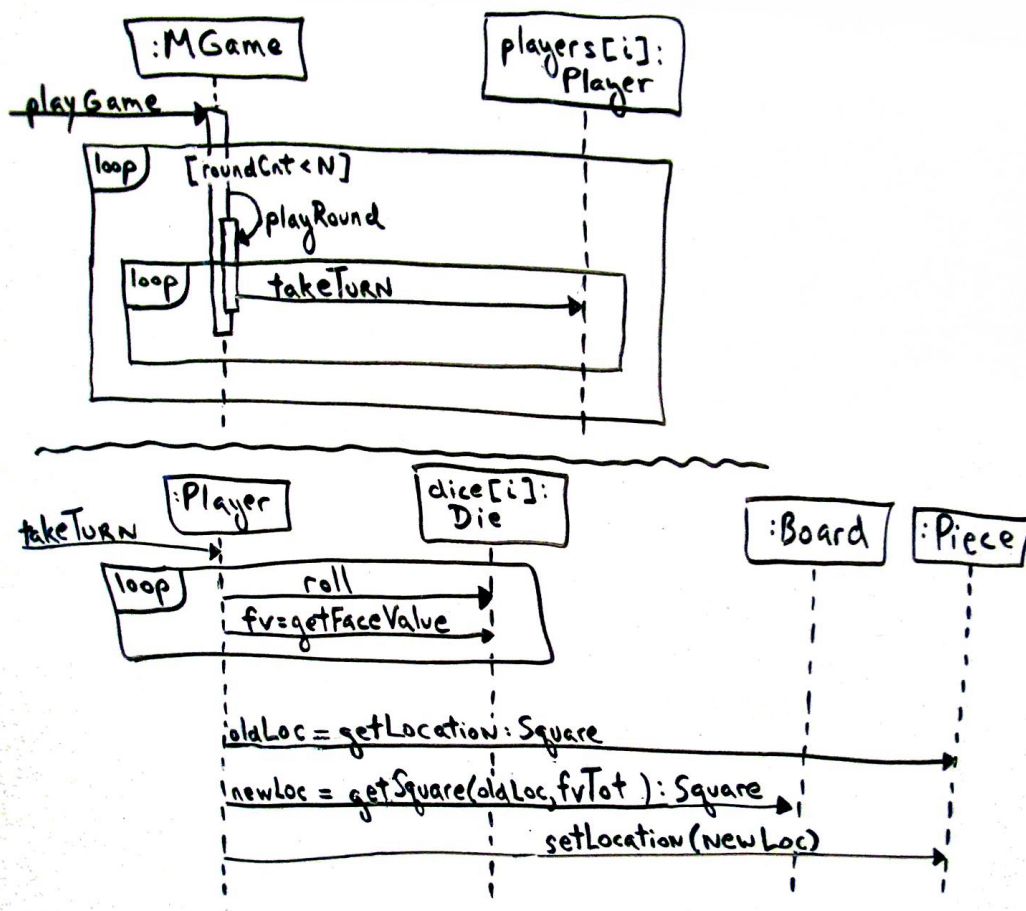 :MGame
players[i]:
Player
playGame
loop
[roundCnt < N]
playRound
loop
takeTURN
:Player
dice[i]:
Die
:Board
:Piece
takeTURN
loop
roll
fv=getFaceValue
oldLoc = getLocation: Square
newLoc = getSquare(oldLoc, fvTot ): Square
setLocation(NewLoc)